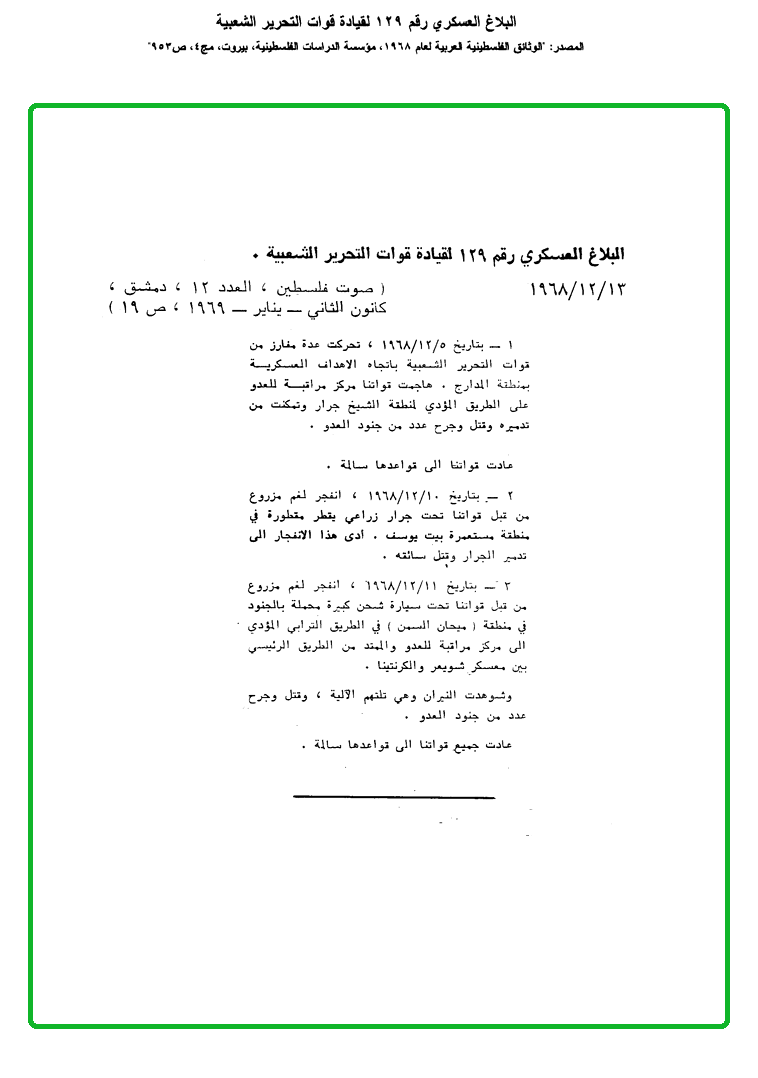 البلاغ العسكري رقم ١٢٩ لقيادة قوات التحرير الشعبية
المصدر: "الوثائق الفلسطينية العربية لعام ١٩٦٨، مؤسسة الدراسات الفلسطينية، بيروت، مج٤، ص٩٥٣"
البلاغ العسكري رقم ١٢٩ لقيادة قوات التحرير الشعبية .
١٩٦٨/١٢/١٣
( صوت فلسطين ، العدد ١٢ ، دمشق ،
كانون الثاني ــ يناير ــ ١٩٦٩ ، ص ١٩ )
١ ــ بتاريخ ١٩٦٨/١٢/٥ ، تحركت عدة مفارز من
قوات التحرير الشعبية باتجاه الاهداف العسكريــة
بمنطقة المدارج . هاجمت قواتنا مركز مراقبــة للعدو
على الطريق المؤدي لمنطقة الشيخ جرار وتمكنت من
تدميره وقتل وجرح عدد من جنود العدو .
عادت قواتنا الى قواعدها سالمة .
٢ ــ بتاريخ ١٩٦٨/١٢/١٠ ، انفجر لغم مزروع
من قبل قواتنا تحت جرار زراعي يقطر مقطورة في
منطقة مستعمرة بيت يوسف . أدى هذا الانفجار الى
تدمير الجرار وقتل سائقه .
٣ ــ بتاريخ ١٩٦٨/١٢/١١ ، انفجر لغم مزروع
من قبل قواتنا تحت سيارة شحن كبيرة محملة بالجنود
في منطقة ( ميحان السمن ) في الطريق الترابي المؤدي
الى مركز مراقبة للعدو والممتد من الطريق الرئيسي
بين معسكر شويعر والكرنتينا .
وشوهدت النيران وهي تلتهم الآلية ، وقتل وجرح
عدد من جنود العدو .
عادت جميع قواتنا الى قواعدها سالمة .